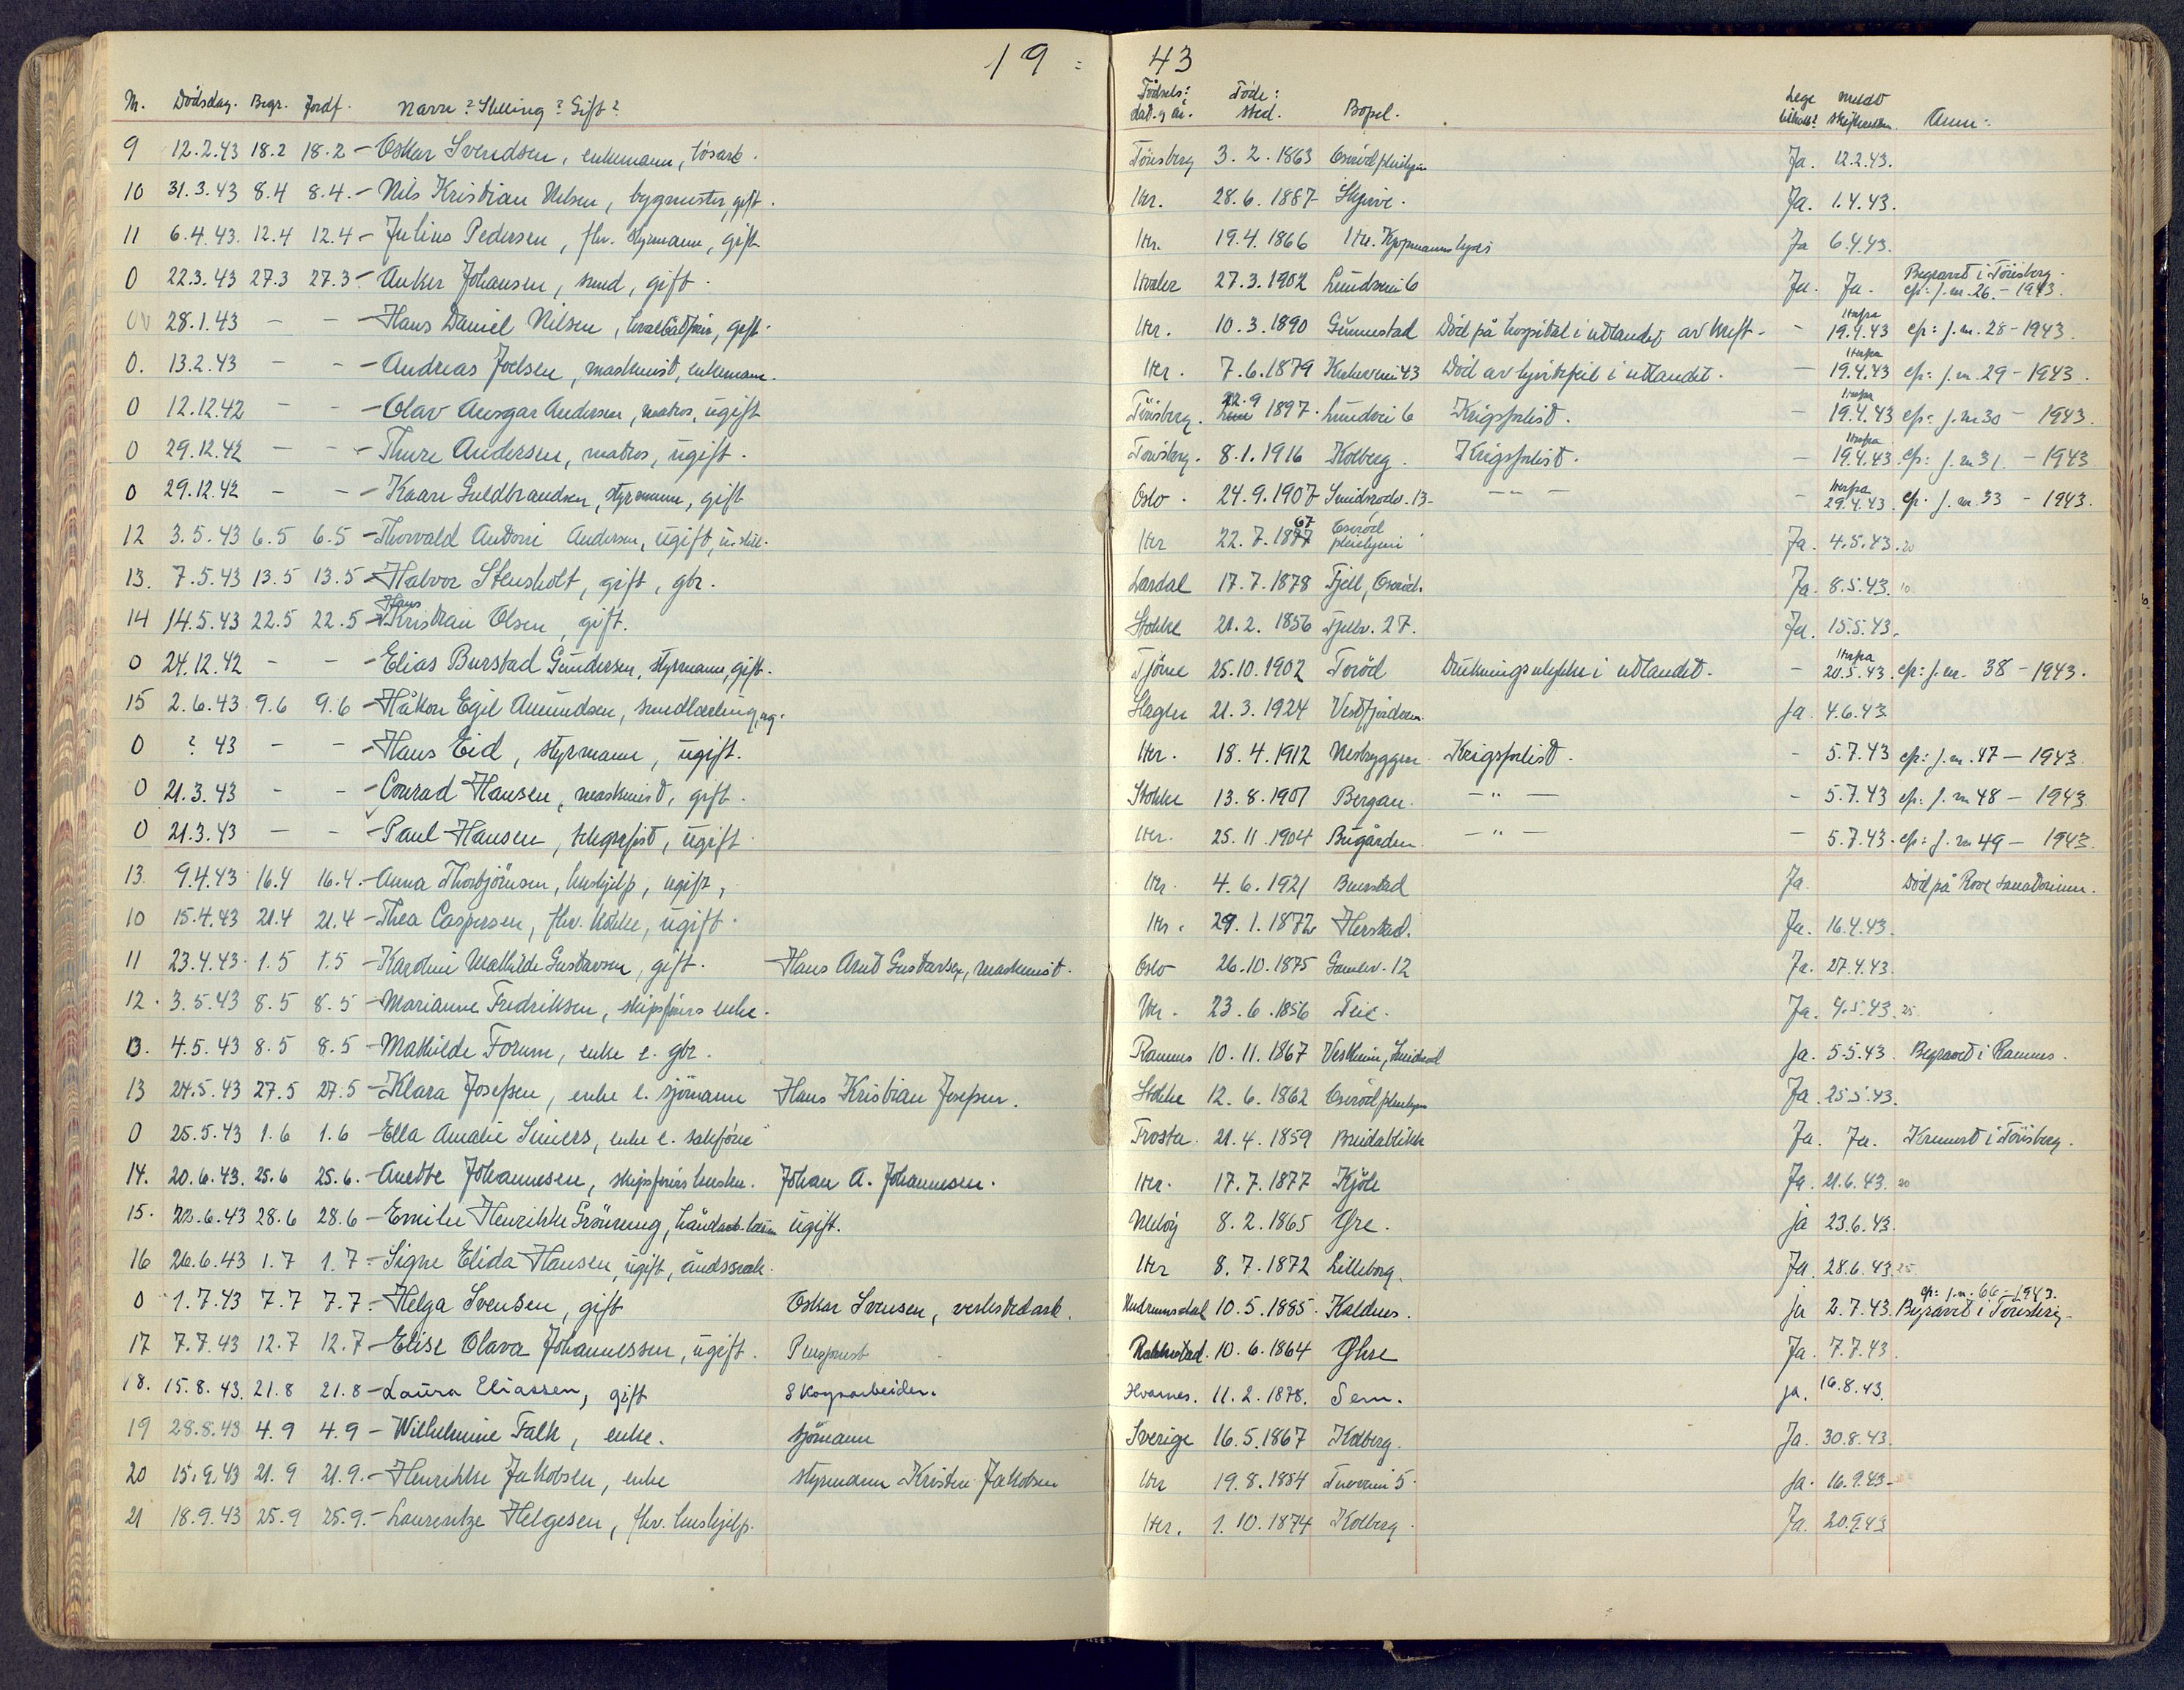 19 = 43
Nr. Dödsdag. Begr. Jordf. Navn? Stilling? Gift? Födsels: dat. og år. Föde: sted. Bopel. Lege meldt Anm:
9 12.2.43 18.2 18.2 - Oskar Svendsen, enkemann, lösarb. Tönsberg 3.2.1863 Eseröd pleiehjem Ja. 12.2.43.
10 31.3.43 8.4 8.4. - Nils Kristian Nilsen, bygmester, gift. Htr. 28.6.1887 Skjerve. Ja. 1.4.43.
11 6.4.43. 12.4 12.4 - Julius Pedersen, fhv. styrmann, gift. Htr. 19.4.1866 Ja 6.4.43.
0 22.3.43 27.3 27.3 - Anker Johansen, smed, gift. Hvaler 27.3.1902 Lundveni 6 Ja. Ja. Begravet i Tönsberg. cfr: j.nr. 26. - 1943.
0 28.1.43 - - - Hans Daniel Nilsen, hvalbåtförer, gift. Htr. 10.3.1890 Gunnestad Död på hospital i utlandet av kreft. - 19.4.43 cfr: j.nr. 28 - 1943.
0. 13.2.43 - - - Andreas Joelsen, maskinist, enkemann. Htr. 7.6.1879 Kirkeveni 43 Död av hjertefeil i utlandet. - 19.4.43 cfr: j.nr. 29 - 1943.
0 12.12.42 - - - Olav Ansgar Andersen, matros, ugift Tönsberg. 22.9 1897. Lundveni 6 Krigsforlist. - 19.4.43 cfr: j.nr 30 - 1943.
0 29.12.42 - - - Thure Andersen, matros, ugift. Tönsberg. 8.1.1916 Kolberg. Krigsforlist. - 19.4.43. cfr: j.nr 31. - 1943
0 29.12.42 - - - Kaare Guldbrandsen, styrmann, gift Oslo. 24.9.1907 Smidsrödv. 13. - " - - 29.4.43. cfr. j.nr. 33 - 1943.
12 3.5.43 6.5 6.5 - Thorvald Antoni Andersen, ugift, u. stil. Htr 22.7.1867 Eseröd pleiehjem Ja. 4.5.43. 20
13. 7.5.43 13.5 13.5 - Halvor Stensholt, gift, gbr. Lardal 17.7.1878 Fjell, Eseröd. Ja. 8.5.43. 10
14 14.5.43 22.5 22.5 - Hans Kristian Olsen, gift. Stokke 21.2.1856 Fjellv. 27. Ja. 15.5.43.
0 24.12.42 - - - Elias Burstad Gundersen, styrmann, gift. Tjöme 25.10.1902 Toröd Drukningsulykke i utlandet. - 20.5.43. cfr: j.nr. 38 - 1943.
15 2.6.43 9.6 9.6 - Håkon Egil Amundsen, smedlærling, ug. Slagen 21.3.1924 Vestfjorden. Ja. 4.6.43
0 ? 43 - - - Hans Eid, styrmann, ugift. Htr. 18.4.1912 Nesbryggen Krigsforlist. - 5.7.43 cfr: j.nr. 47 - 1943
0 21.3.43 - - - Conrad Hansen, maskinist, gift. Stokke 13.8.1901 Bergan. - " - - 5.7.43 cfr: j.nr 48 - 1943.
0 21.3.43 - - - Paul Hansen, telegrafist, ugift Htr. 25.11.1904 Bugården - " - - 5.7.43. cfr: j.nr 49 - 1943.
13. 9.4.43 16.4 16.4. - Anna Thorbjörnsen, hushjelp, ugift, Htr. 4.6.1921 Burstad Ja. Död på Rove sanatorium.
10 15.4.43 21.4 21.4 - Thea Caspersen, fhv. kokke, ugift. Htr. 29.1.1872 Herstad. Ja. 16.4.43.
11 23.4.43. 1.5 1.5 - Karoline Mathilde Gustavsen, gift. Hans Arnt Gustavsen, maskinist. Oslo 26.10.1875 Gamlev. 12 Ja. 27.4.43.
12. 3.5.43 8.5 8.5 - Marianne Fredriksen, skipsförers enke. Htr. 23.6.1856 Teie. Ja. 4.5.43. 25.
13. 4.5.43 8.5 8.5 - Mathilde Forum, enke e. gbr. Ramnes 10.11.1867 Vestheim, Smidsröd Ja. 5.5.43. Begravet i Ramnes.
13 24.5.43 27.5 27.5 - Klara Josefsen, enke e. sjömann Hans Kristian Josefsen. Stokke 12.6.1862 Eseröd pleiehjem Ja. 25.5.43.
0 25.5.43 1.6 1.6 - Ella Amalie Siniers, enke e. sakförer Frosta. 21.4.1859 Breidablikk Ja. Ja. Kremert i Tönsberg.
14. 20.6.43. 25.6 25.6. - Anette Johannesen, skipsförers hustru. Johan A. Johannesen. Htr. 17.7.1877 Kjöle Ja. 21.6.43. 20
15. 22.6.43 28.6 28.6 - Emilie Henrikke Grönneng, håndarb. lærerin. ugift. Meloy 8.2.1865 Öre. ja 23.6.43.
16 26.6.43 1.7 1.7 - Signe Elida Hansen, ugift, åndssvak. Htr 8.7.1872 Lilleborg. Ja. 28.6.43. 25
0 1.7.43 7.7 7.7. - Helga Svensen, gift Oskar Svensen, verkstedarb. Undrumsdal 10.5.1885. Kaldnes. ja 2.7.43. cfr: j.nr. 66 - 1943. Begravet i Tönsberg.
17 7.7.43 12.7 12.7 - Elise Olava Johannessen, ugift. Rakkestad. 10.6.1864 Öhre Ja. 7.7.43.
18. 15.8.43. 21.8 21.8 - Laura Eliassen, gift Skogsarbeider. Hvarnes. 11.2.1878. Sem. ja. 16.8.43.
19 28.8.43 4.9 4.9 - Wilhelmine Falk, enke. sjömann Sverige 16.5.1867 Kolberg. Ja. 30.8.43.
20 15.9.43 21.9 21.9. - Henrikke Jakobsen, enke styrmann Kristen Jakobsen Htr 19.8.1854 Tuveveni 5. Ja. 16.9.43.
21 18.9.43 25.9 25.9. - Laurentze Helgesen, fhv. hushjelp. Htr. 1.10.1874 Kolberg. Ja. 20.9.43